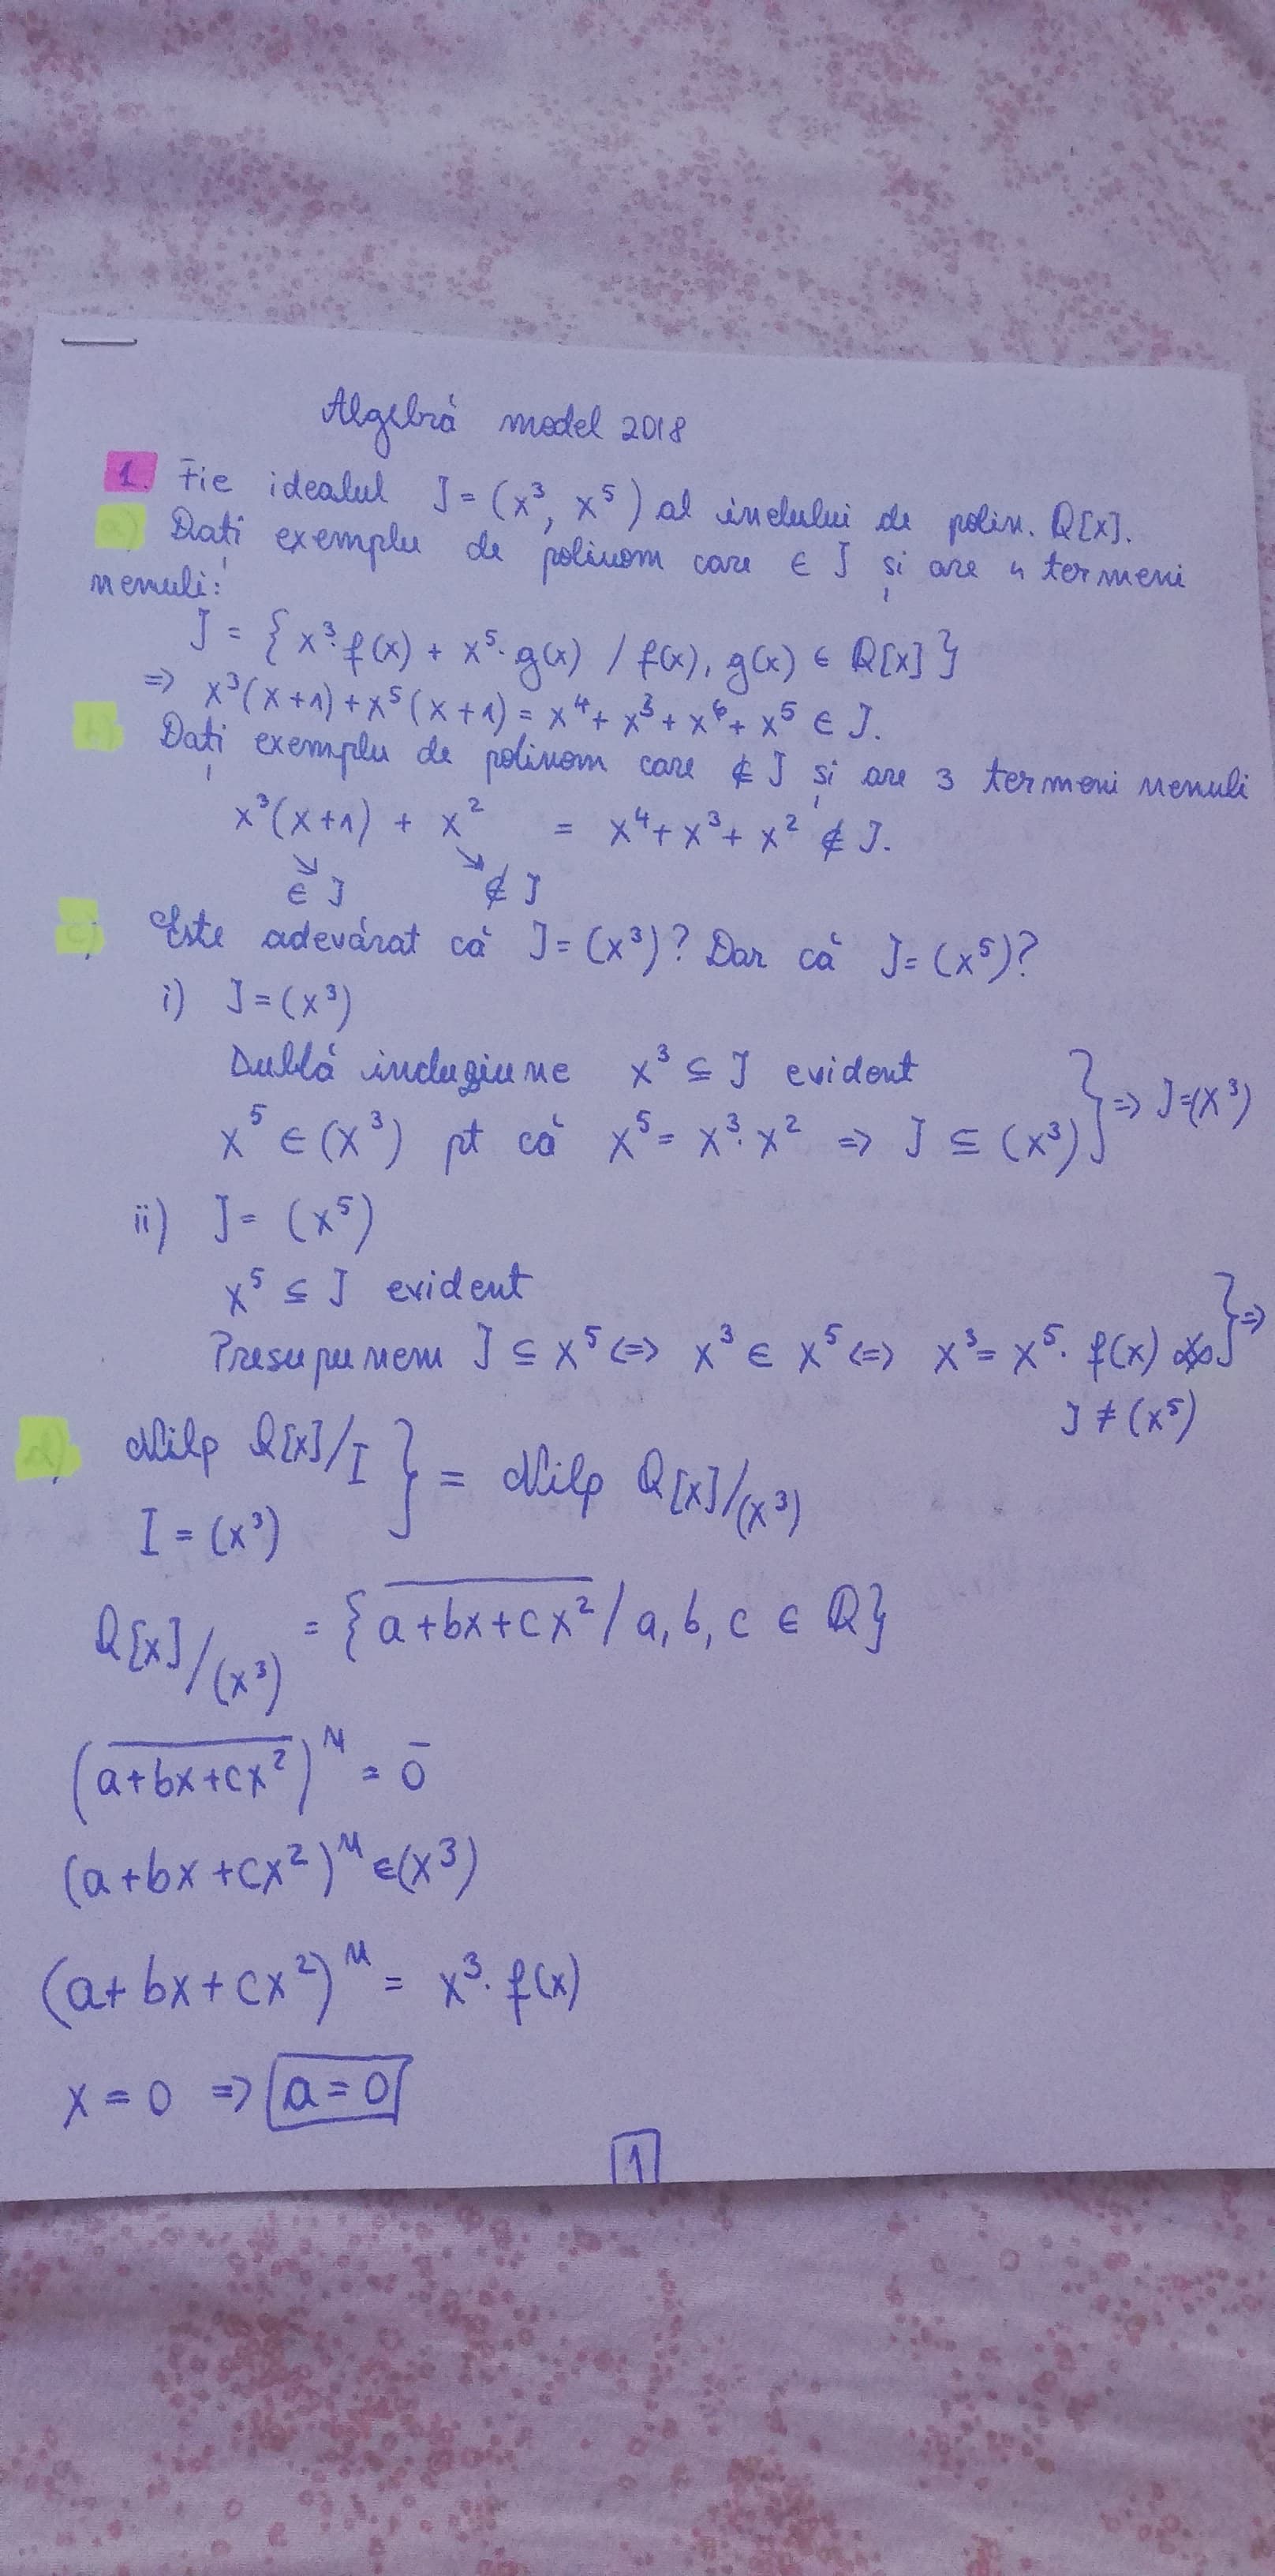 Algebră model 2018
1. Fie idealul J = (x³, x⁵) al inelului de polin. Q[x].
a) Dați exemplu de polinom care ∈ J și are 4 termeni
nenuli:
J = { x³·f(x) + x⁵·g(x) / f(x), g(x) ∈ Q[x] }
=> x³(x+1) + x⁵(x+1) = x⁴ + x³ + x⁶ + x⁵ ∈ J.
b) Dați exemplu de polinom care ∉ J și are 3 termeni nenuli
x³(x+1) + x² = x⁴ + x³ + x² ∉ J.
↘ ↘
∈ J ∉ J
c) Este adevărat că J = (x³)? Dar că J = (x⁵)?
i) J = (x³)
Dublă incluziune x³ ⊆ J evident
x⁵ ∈ (x³) pt că x⁵ = x³·x² => J ⊆ (x³) } => J=(x³)
ii) J = (x⁵)
x⁵ ⊆ J evident
Presupunem J ⊆ x⁵ <=> x³ ∈ x⁵ <=> x³ = x⁵·f(x) } =>
J ≠ (x⁵)
d) Nilp Q[x]/I } = Nilp Q[x]/(x³)
I = (x³)
Q[x]/(x³) = { \overline{a+bx+cx²} / a, b, c ∈ Q }
(\overline{a+bx+cx²})ⁿ = \overline{0}
(a+bx+cx²)ⁿ ∈ (x³)
(a+bx+cx²)ⁿ = x³·f(x)
x = 0 => a = 0
1